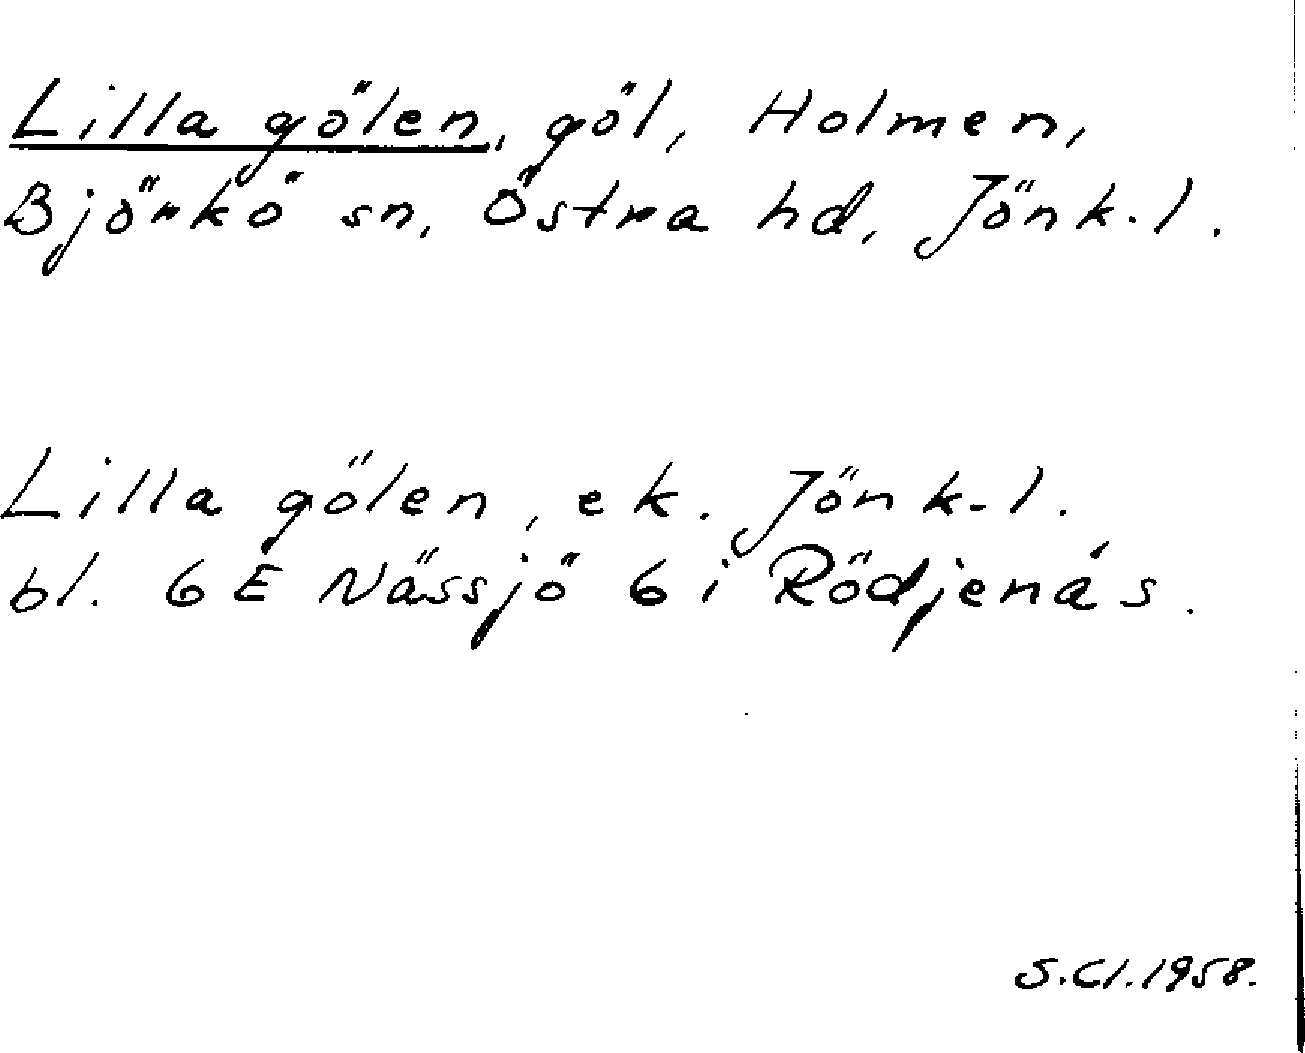 Lilla gölen, göl, Holmen,
Björkö sn, Östra hd, Jönk.l.
Lilla gölen, ek. Jönk.l.
bl. 6E Nässjö 6i Rödjenäs.
S.Cl.1958.